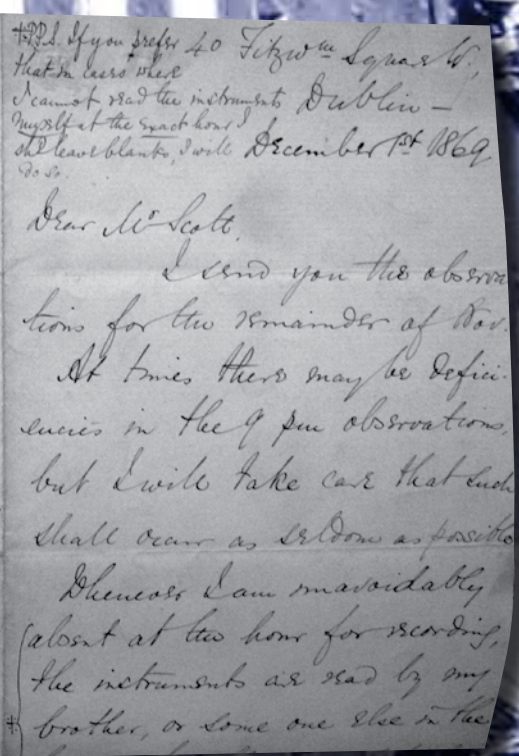 ‡P.P.S. If you prefer
that in cases where
I cannot read the instruments
myself at the exact hour I
shd leave blanks, I will
do so.
40 Fitzwm Square W.,
Dublin —
December 1st 1869
Dear Mr Scott,
I send you the observa
tions for the remainder of Nov.
At times there may be defici-
encies in the 9 pm observations,
but I will take care that such
shall occur as seldom as possible
Whenever I am unavoidably
absent at the hour for recording,
the instruments are read by my
‡ brother, or some one else in the